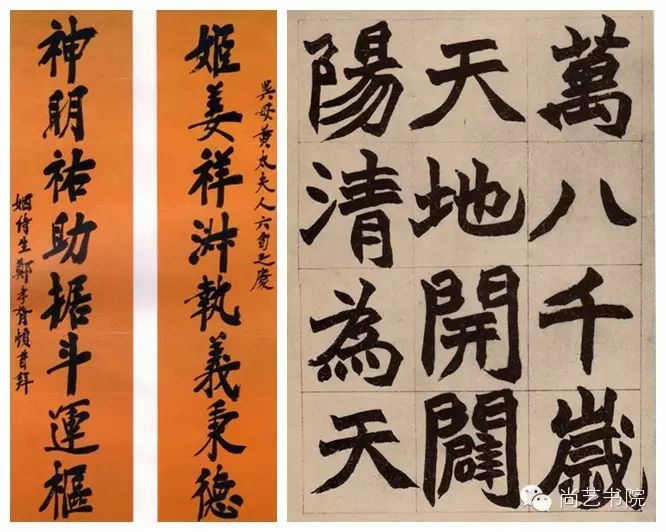 吳母黃太夫人六旬之慶
姬姜祥淑執義秉德
神明祐助据斗運樞
姻侍生鄭孝胥頓首拜
萬八千歲
天地開闢
陽清為天
尚艺书院